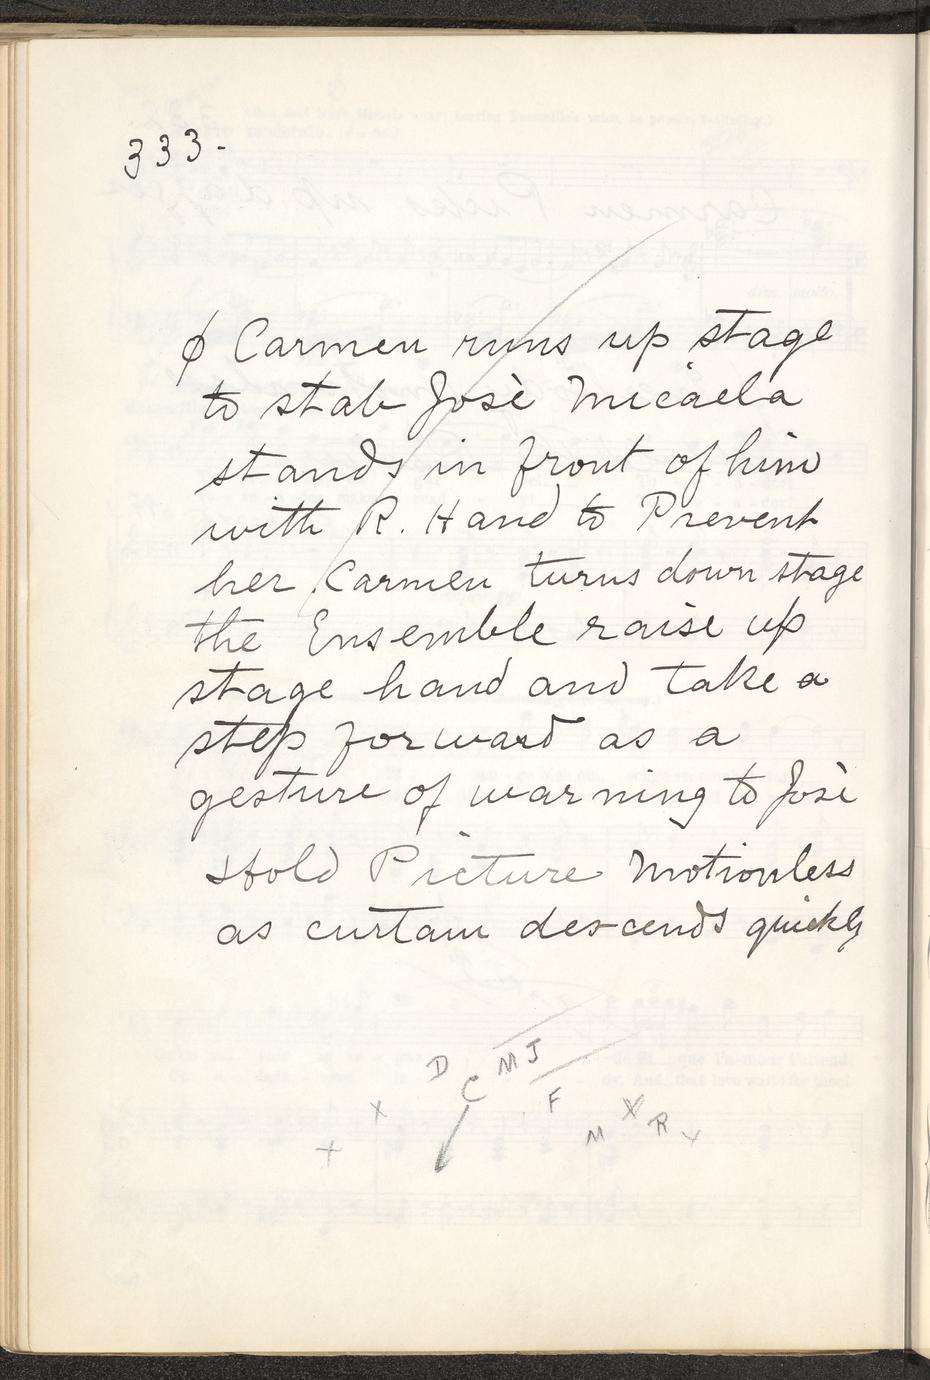 333-
ϕ Carmen runs up stage
to stab Josè Micaela
stands in front of him
with R. Hand to Prevent
her Carmen turns down stage
the Ensemble raise up
stage hand and take a
step forward as a
gesture of warning to Josè
Hold Picture Motionless
as curtain descends quickly
D C M J
F
X X M X R X